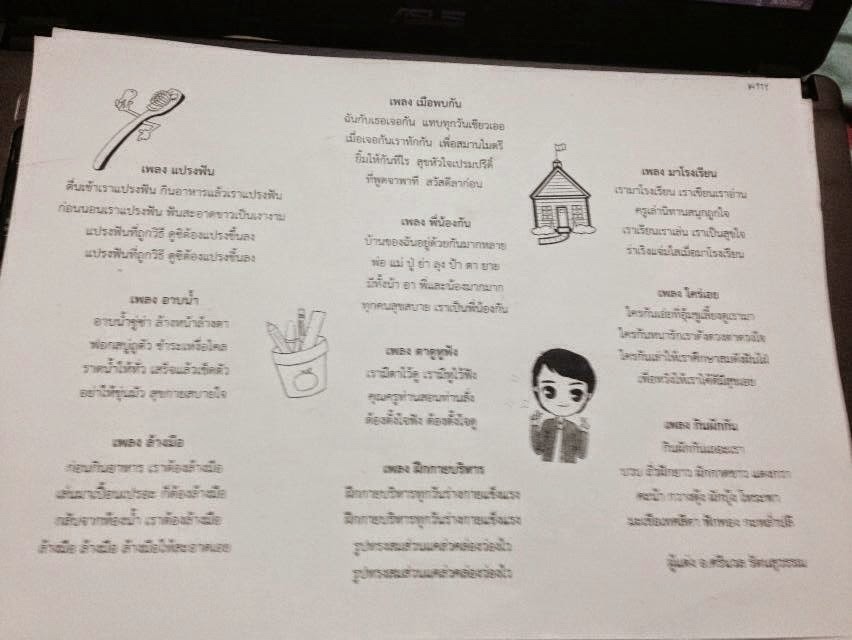 ASUS
เพลง แปรงฟัน
ตื่นเช้าเราแปรงฟัน กินอาหารแล้วเราแปรงฟัน
ก่อนนอนเราแปรงฟัน ฟันสะอาดขาวเป็นเงางาม
แปรงฟันที่ถูกวิธี ดูซิต้องแปรงขึ้นลง
แปรงฟันที่ถูกวิธี ดูซิต้องแปรงขึ้นลง
เพลง อาบน้ำ
อาบน้ำซู่ซ่า ล้างหน้าล้างตา
ฟอกสบู่ถูตัว ชำระเหงื่อไคล
ราดน้ำให้ทั่ว เสร็จแล้วเช็ดตัว
อย่าให้ขุ่นมัว สุขกายสบายใจ
เพลง ล้างมือ
ก่อนกินอาหาร เราต้องล้างมือ
เล่นมาเปื้อนเปรอะ ก็ต้องล้างมือ
กลับจากห้องน้ำ เราต้องล้างมือ
ล้างมือ ล้างมือ ล้างมือให้สะอาดเอย
เพลง เมื่อพบกัน
ฉันกับเธอเจอกัน แทบทุกวันเชียวเออ
เมื่อเจอกันเราทักกัน เพื่อสมานไมตรี
ยิ้มให้กันทีไร สุขหัวใจเปรมปรีดิ์
ที่พูดจาพาที สวัสดีลาก่อน
เพลง พี่น้องกัน
บ้านของฉันอยู่ด้วยกันมากหลาย
พ่อ แม่ ปู่ ย่า ลุง ป้า ตา ยาย
มีทั้งน้า อา พี่และน้องมากมาก
ทุกคนสุขสบาย เราเป็นพี่น้องกัน
เพลง ตาดูหูฟัง
เรามีตาไว้ดู เรามีหูไว้ฟัง
คุณครูท่านสอนท่านสั่ง
ต้องตั้งใจฟัง ต้องตั้งใจดู
เพลง ฝึกกายบริหาร
ฝึกกายบริหารทุกวันร่างกายแข็งแรง
ฝึกกายบริหารทุกวันร่างกายแข็งแรง
รูปทรงสมส่วนแคล่วคล่องว่องไว
รูปทรงสมส่วนแคล่วคล่องว่องไว
เพลง มาโรงเรียน
เรามาโรงเรียน เราเขียนเราอ่าน
ครูเล่านิทานสนุกถูกใจ
เราเรียนเราเล่น เราเป็นสุขใจ
ร่าเริงแจ่มใสเมื่อมาโรงเรียน
เพลง ใครเอย
ใครกันเอ่ยที่อุ้มชูเลี้ยงดูเรามา
ใครกันหนารักเราดังดวงตาดวงใจ
ใครกันเล่าให้เราศึกษาสมดังฝันใฝ่
เพื่อหวังให้เราได้ดีมีสุขเอย
เพลง กินผักกัน
กินผักกันเถอะเรา
บวบ ถั่วฝักยาว ผักกาดขาว แตงกวา
คะน้า กวางตุ้ง ผักบุ้ง โหระพา
มะเขือเทศสีดา ฟักทอง กะหล่ำปลี
ผู้แต่ง อ.ศรีนวล รัตนสุวรรณ